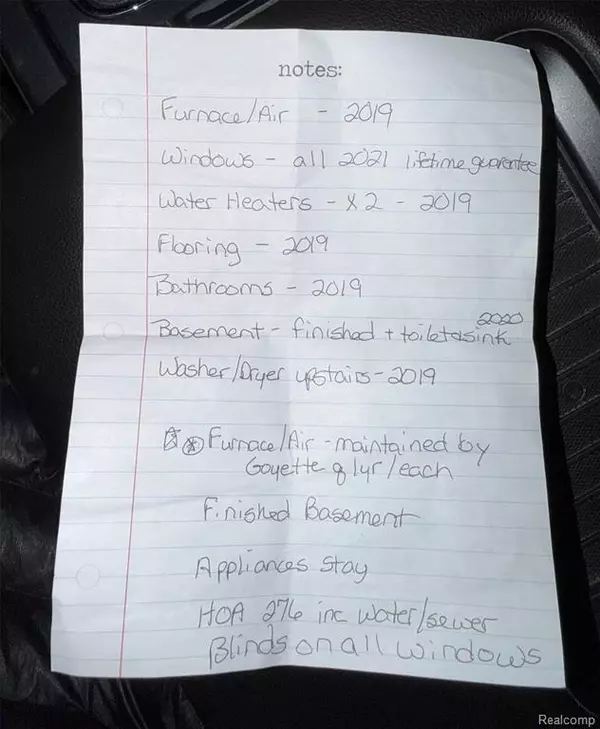 notes:
Furnace/Air - 2019
Windows - all 2021 lifetime guarentee
Water Heaters - x 2 - 2019
Flooring - 2019
Bathrooms - 2019
2020
Basement - finished + toilet&sink
Washer/Dryer upstairs - 2019
Furnace/Air - maintained by
Goyette q 1yr/each
Finished Basement
Appliances stay
HOA 276 inc water/sewer
Blinds on all windows
Realcomp